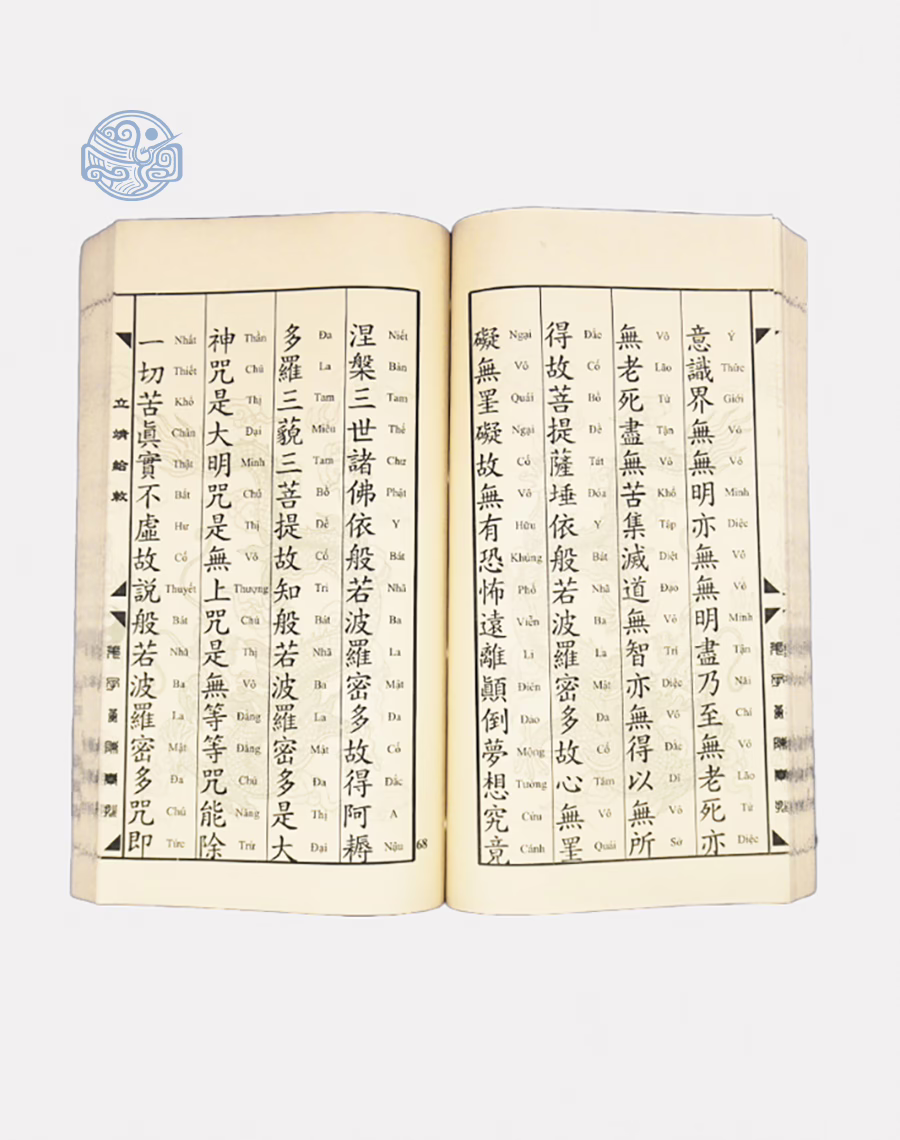 意識界無無明亦無無明盡乃至無老死亦
Ý Thức Giới Vô Vô Minh Diệc Vô Vô Minh Tận Nãi Chí Vô Lão Tử Diệc
無老死盡無苦集滅道無智亦無得以無所
Vô Lão Tử Tận Vô Khổ Tập Diệt Đạo Vô Trí Diệc Vô Đắc Dĩ Vô Sở
得故菩提薩埵依般若波羅密多故心無罣
Đắc Cố Bồ Đề Tát Đóa Y Bát Nhã Ba La Mật Đa Cố Tâm Vô Quái
礙無罣礙故無有恐怖遠離顛倒夢想究竟
Ngại Vô Quái Ngại Cố Vô Hữu Khủng Phố Viễn Li Điên Đảo Mộng Tưởng Cứu Cánh
68
涅槃三世諸佛依般若波羅密多故得阿耨
Niết Bàn Tam Thế Chư Phật Y Bát Nhã Ba La Mật Đa Cố Đắc A Nậu
多羅三藐三菩提故知般若波羅密多是大
Đa La Tam Miểu Tam Bồ Đề Cố Tri Bát Nhã Ba La Mật Đa Thị Đại
神咒是大明咒是無上咒是無等等咒能除
Thần Chú Thị Đại Minh Chú Thị Vô Thượng Chú Thị Vô Đẳng Đẳng Chú Năng Trừ
一切苦眞實不虛故説般若波羅密多咒即
Nhất Thiết Khổ Chân Thật Bất Hư Cố Thuyết Bát Nhã Ba La Mật Đa Chú Tức